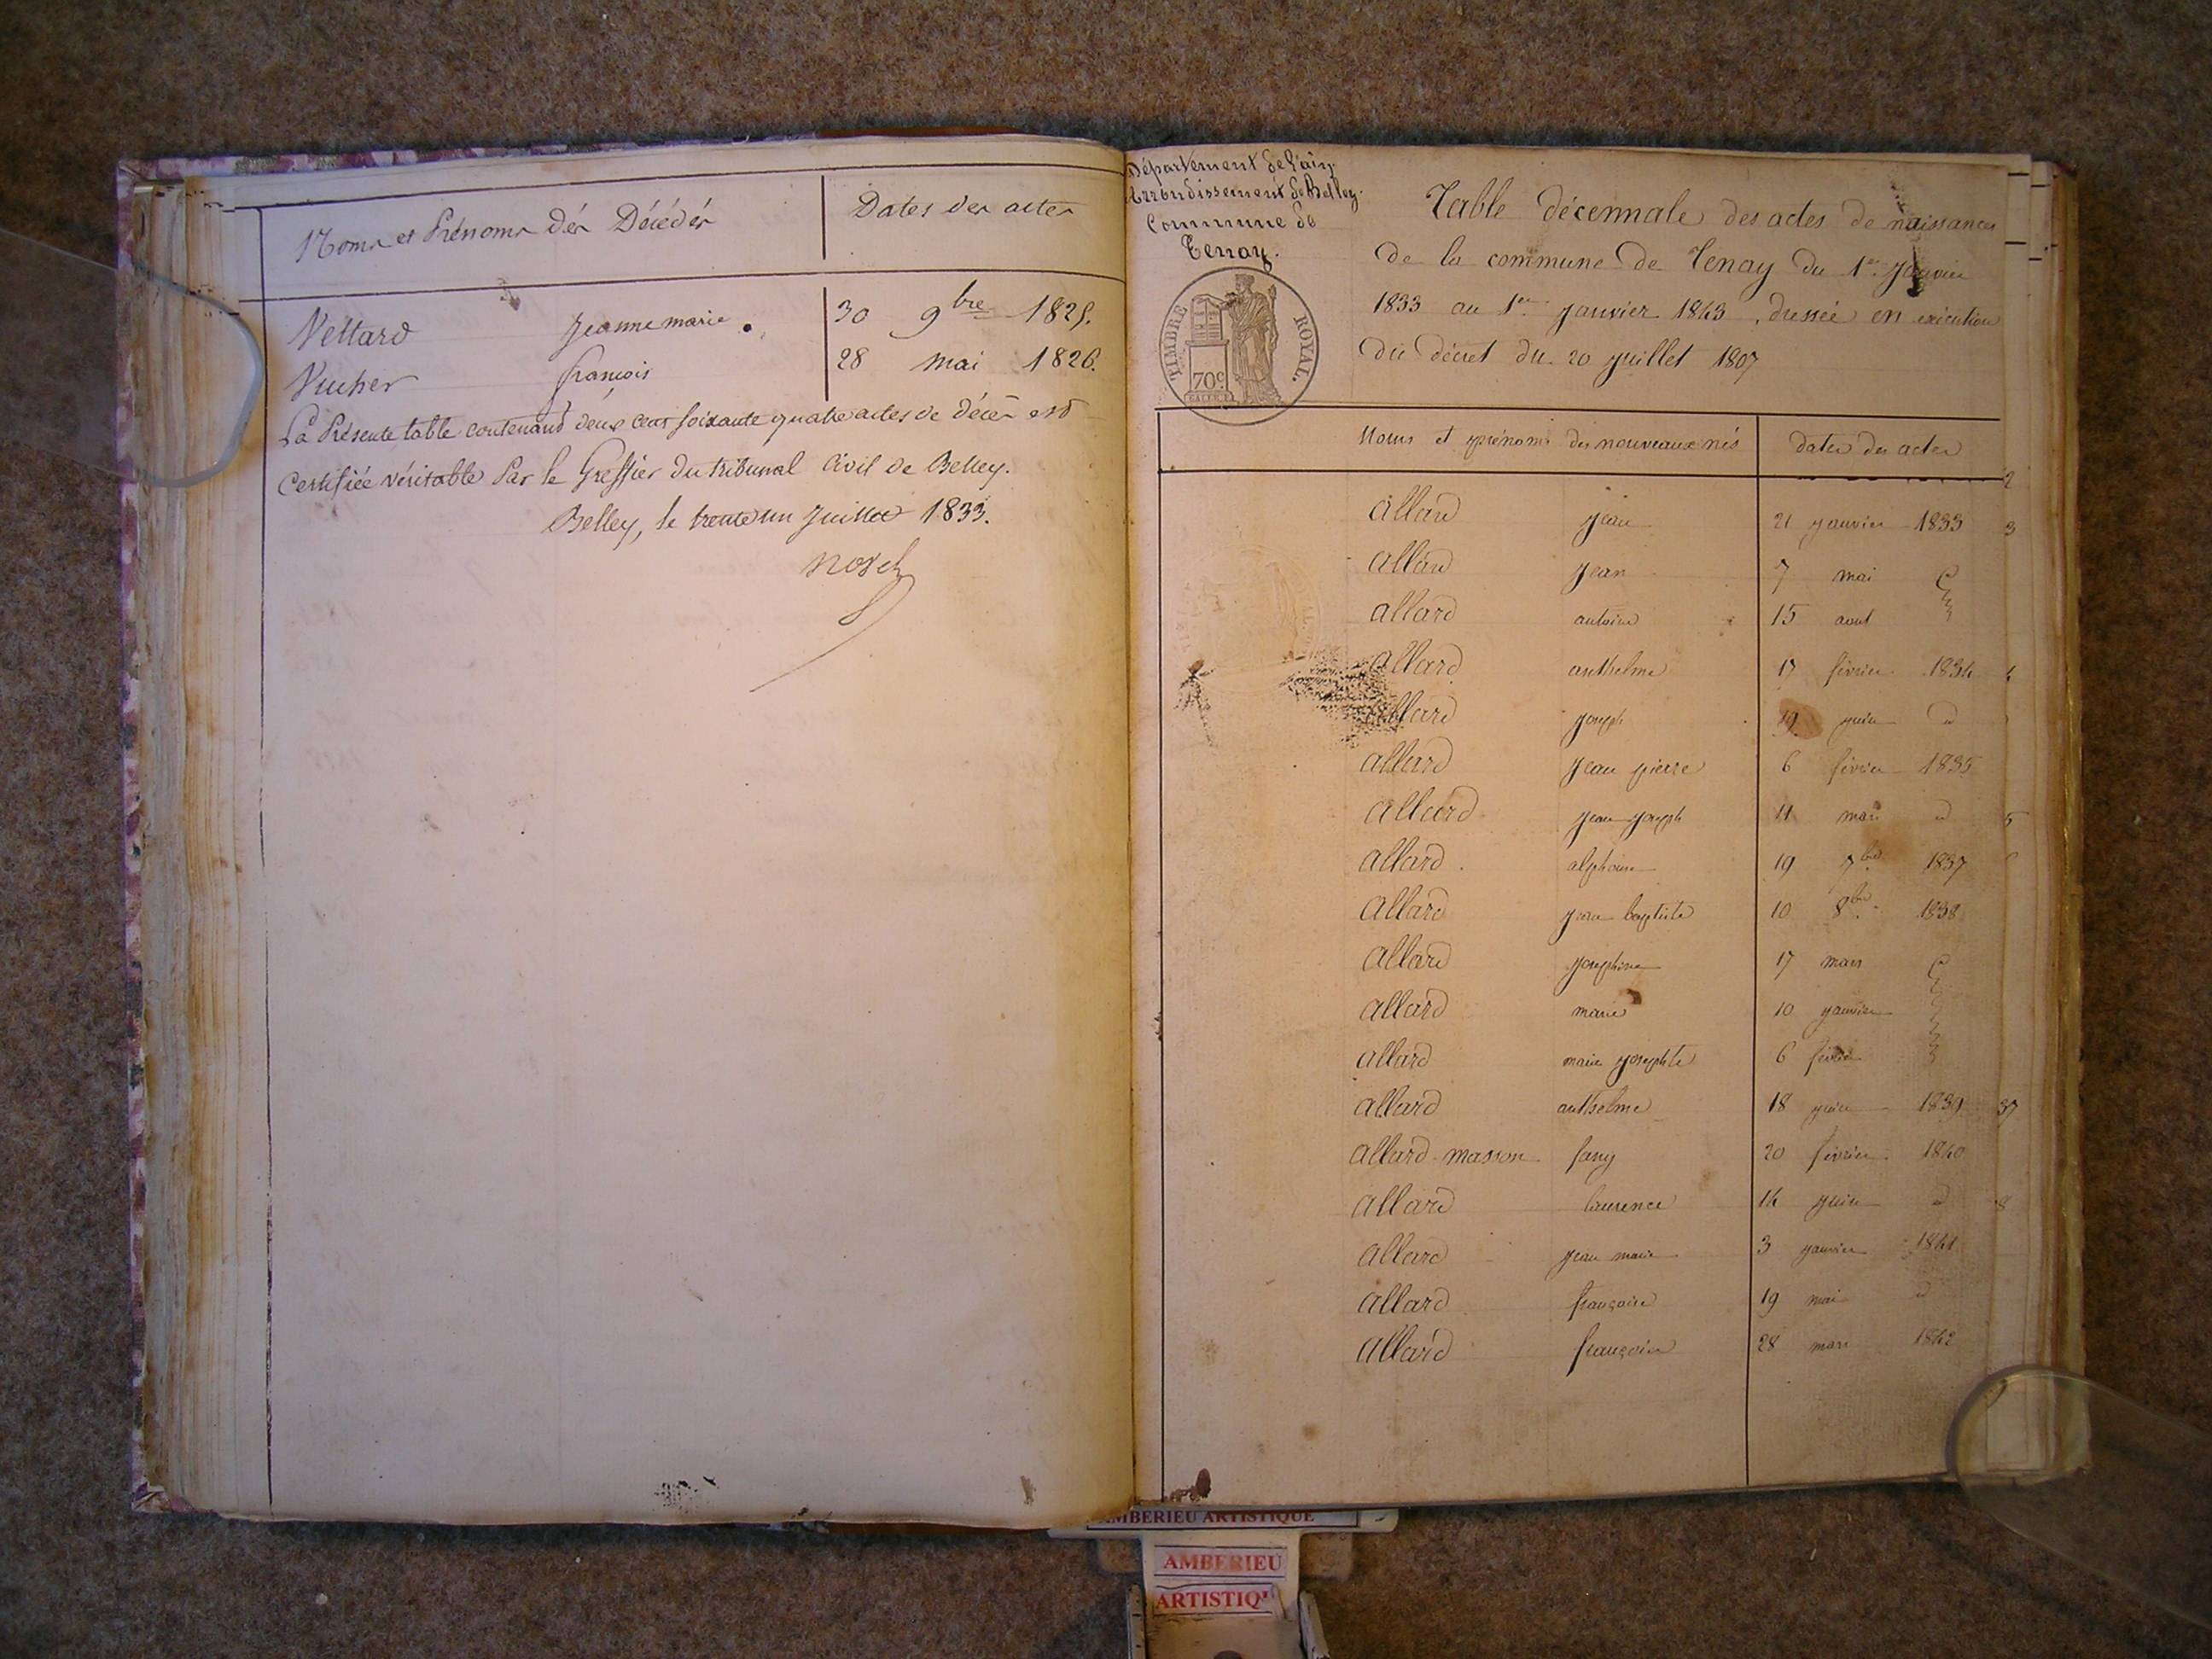 Noms et Prénoms des Décédés Dates des actes
Vettard Jeanne marie 30 9bre 1825.
Vucher françois 28 mai 1826.
La Présente table contenant deux cent soixante quatre actes de décès est
certifiée véritable Par le Greffier du tribunal Civil de Belley.
Belley, le trente un Juillet 1833.
Département de l'ain
Arrondissement de Belley.
Commune de
Tenay.
TIMBRE ROYAL.
70c.
Table décennale des actes de naissances
de la commune de Tenay du 1er Janvier
1833 au 1er Janvier 1843, dressée en exécution
du décret du 20 juillet 1807
Noms et prénoms des nouveaux nés dates des actes
2
allard jean 21 janvier 1833 3
allard jean 7 mai
allard antoine 15 aout
allard anthelme 17 février 1834 4
allard joseph 19 juin d
allard jean pierre 6 février 1835
allard jean joseph 11 mars d 5
allard alphonse 19 7bre 1837
allard jean baptiste 10 8bre 1838
allard josephine 17 mars
allard marie 10 janvier
allard marie josephte 6 février
allard anthelme 18 juin 1839 37
allard masson fany 20 février 1840
allard laurence 14 juin d 8
allard jean marie 3 janvier 1841
allard françoise 19 mai d
allard françois 28 mars 1842
AMBERIEU ARTISTIQUE
AMBERIEU
ARTISTIQU